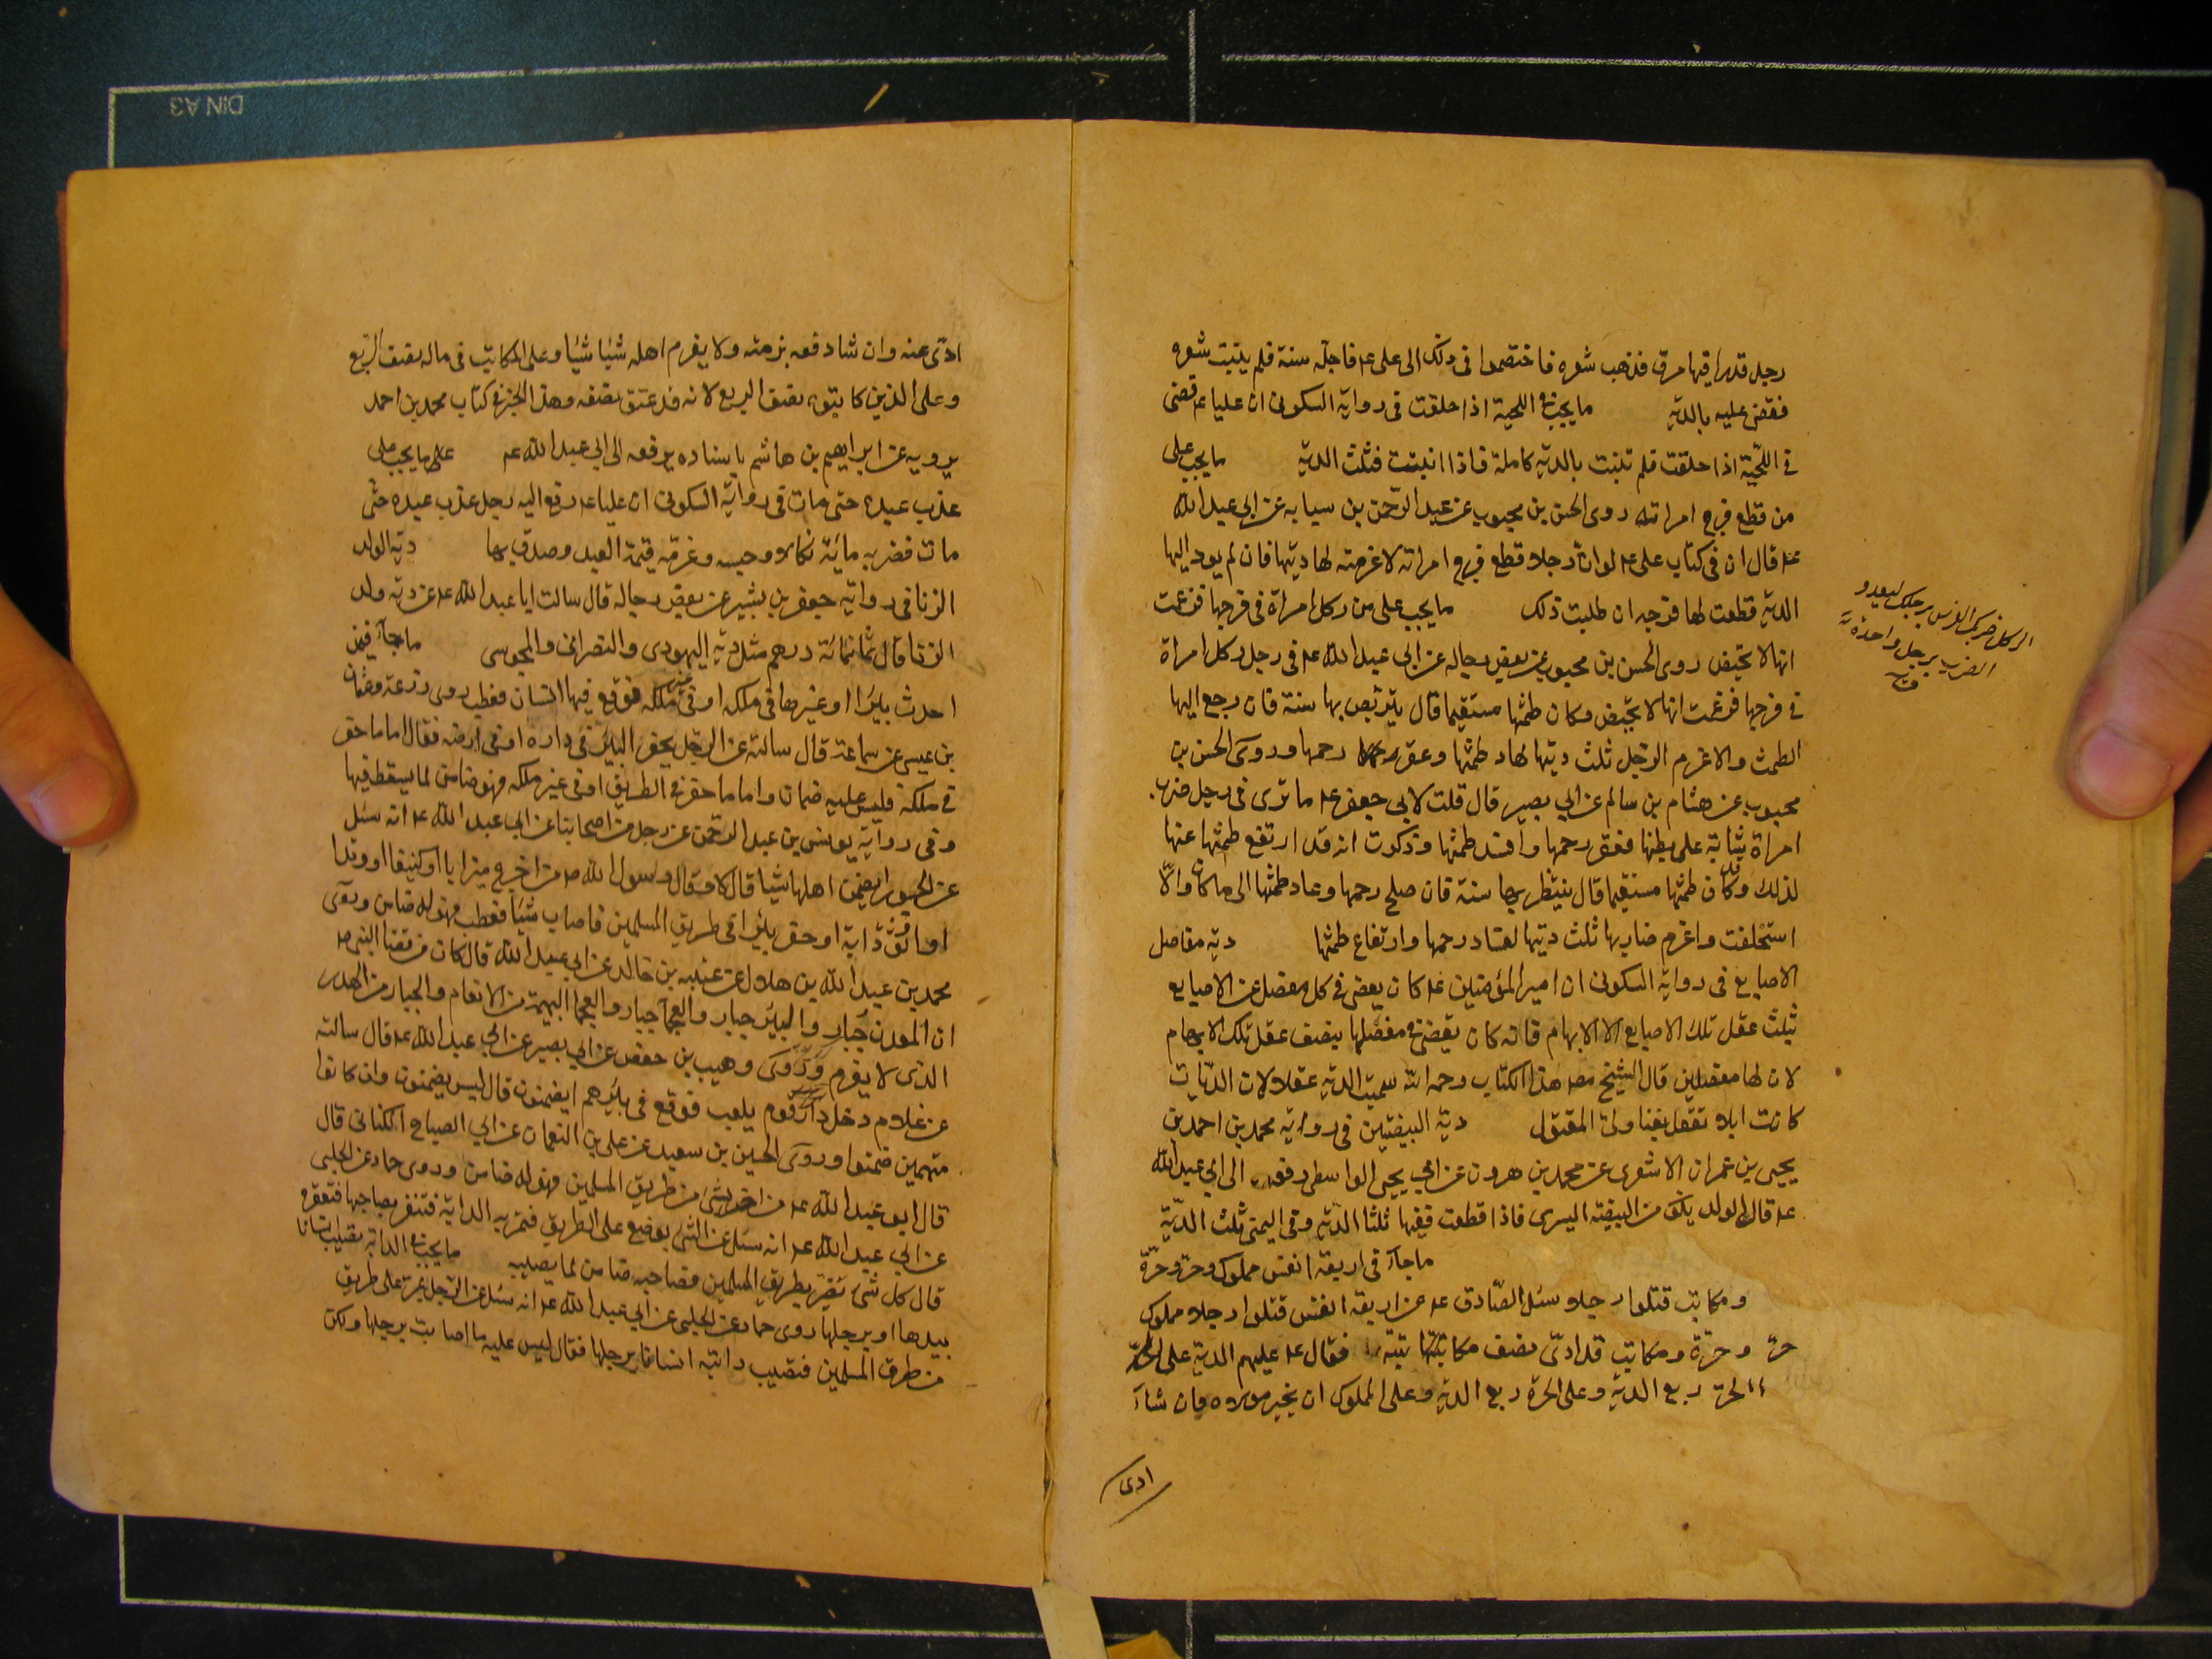 رجل قدرا فيها مرق فذهب شعره فاختصموا فى ذلك الى على عم فاجله سنة فلم ينبت شعره
فقضى عليه بالدية ما يجب فى اللحية اذا حلقت فى رواية السكونى ان عليا عم قضى
فى اللحية اذا حلقت فلم تنبت بالدية كاملة فاذا انبتت فثلث الدية ما يجب على
من قطع فرج امراته روى الحسن بن محبوب عن عبد الرحمن بن سيابه عن ابى عبد الله
عم قال ان فى كتاب على عم لو ان رجلا قطع فرج امراته لاغرمته لها ديتها فان لم يود اليها
الدية قطعت لها فرجه ان طلبت ذلك ما يجب على من ركل امراة فى فرجها فزعمت
انها لا تحيض روى الحسن بن محبوب عن بعض رجاله عن ابى عبد الله عم فى رجل ركل امراة
فى فرجها فزعمت انها لا تحيض وكان طمثها مستقيما قال يتربص بها سنة فان رجع اليها
الطمث والا غرم الرجل ثلث ديتها لفساد طمثها وعقر رحمها وروى الحسن بن
محبوب عن هشام بن سالم عن ابى بصير قال قلت لابى جعفر عم ما ترى فى رجل ضرب
امراة شابة على بطنها فعقر رحمها وافسد طمثها وذكرت انه قد ارتفع طمثها عنها
لذلك وقد كان طمثها مستقيما قال ينتظر بها سنة فان صلح رحمها وعاد طمثها الى ما كان والا
استحلفت واغرم ضاربها ثلث ديتها لفساد رحمها وارتفاع طمثها دية مفاصل
الاصابع فى رواية السكونى ان امير المؤمنين عم كان يقضى فى كل مفصل من الاصابع
بثلث عقل تلك الاصابع الا الابهام فانه كان يقضى فى مفصلها بنصف عقل تلك الابهام
لان لها مفصلين قال الشيخ مصـ هذا الكتاب رحمه الله سميت الدية عقلا لان الديات
كانت ابلا تعقل بفنا ولى المقتول دية البيضتين فى رواية محمد بن احمد بن
يحيى بن عمران الاشعرى عن محمد بن هرون عن ابى يحيى الواسطى رفعه الى ابى عبد الله
عم قال الولد يكون من البيضة اليسرى فاذا قطعت ففيها ثلثا الدية وفى اليمنى ثلث الدية
ما جآء فى اربعة انفس مملوك وحر وحرة
ومكاتب قتلوا رجلا سئل الصادق عم عن اربعة انفس قتلوا رجلا مملوك
حر وحرة ومكاتب قد ادى نصف مكاتبته فقال عم عليهم الدية على الحر
الحر ربع الدية وعلى الحرة ربع الدية وعلى المملوك ان يخير مولاه فان شآء
ادى
الركل ضربك الفرس برجلك ليعدو و
الضرب برجل واحدة
ق
ادى عنه وان شا دفعه برمته ولا يغرم اهله شيئا شيئا وعلى المكاتب فى ماله نصف الربع
وعلى الذين كاتبوه نصف الربع لانه قد عتق نصفه وهذا الخبر فى كتاب محمد بن احمد
يرويه عن ابراهيم بن هاشم باسناده يرفعه الى ابى عبد الله عم ما يجب على
عذب عبده حتى مات فى رواية السكونى ان عليا عم رفع اليه رجل عذب عبده حتى
مات فضربه مائة نكالا وحبسه وغرمه قيمة العبد وصدق بها دية الولد
الزنا فى رواية جعفر بن بشير عن بعض رجاله قال سالت ابا عبد الله عم عن دية ولد
الزنا قال ثمانمائة درهم مثل دية اليهودى والنصرانى والمجوسى ما جآء فيمن
احدث بئرا او غيرها فى ملكه او فى غير ملكه فوقع فيها انسان فعطب روى زرعة وعثمان
بن عيسى عن سماعة قال سالته عن الرجل يحفر البئر فى داره او فى ارضه فقال اما ما حفر
فى ملكه فليس عليه ضمان واما ما حفر فى الطريق او فى غير ملكه فهو ضامن لما يسقط فيها
وفى رواية يونس بن عبد الرحمن عن رجل من اصحابنا عن ابى عبد الله عم انه سئل
عن الجسور ايضمن اهلها شيا قال لا وقال رسول الله ص من اخرج ميزابا او كنيفا او وتدا
او اوثق دابة او حفر بئرا فى طريق المسلمين فاصاب شيئا فعطب فهو له ضامن وروى
محمد بن عبد الله بن هلال عن عقبه بن خالد عن ابى عبد الله قال كان من قضا النبى ص
ان المعدن جبار والبئر جبار والعجمآ جبار والعجما البهيمة من الانعام والجبار من الهدر
الذى لا يغرم وروى وهيب بن حفص عن ابى بصير عن ابى عبد الله عم قال سالته
عن غلام دخل دار قوم يلعب فوقع فى بئرهم ايضمنون قال ليس يضمنون وان كانوا
متهمين ضمنوا وروى الحسين بن سعيد عن على بن النعمان عن ابى الصباح الكنانى قال
قال ابو عبد الله عم من اضر بشئ من طريق المسلمين فهو له ضامن وروى حماد عن الحلبى
عن ابى عبد الله عم انه سئل عن الشى يوضع على الطريق فتمر به الدابة فتنفر بصاحبها فتعقره
قال كل شئ يضر بطريق المسلمين فصاحبه ضامن لما يصيبه ما يجب فى الدابة تصيب انسانا
بيدها او برجلها روى حماد عن الحلبى عن ابى عبد الله عم انه سئل عن الرجل يمر على طريق
من طرق المسلمين فتصيب دابته انسانا برجلها فقال ليس عليه ما اصابت برجلها ولكن